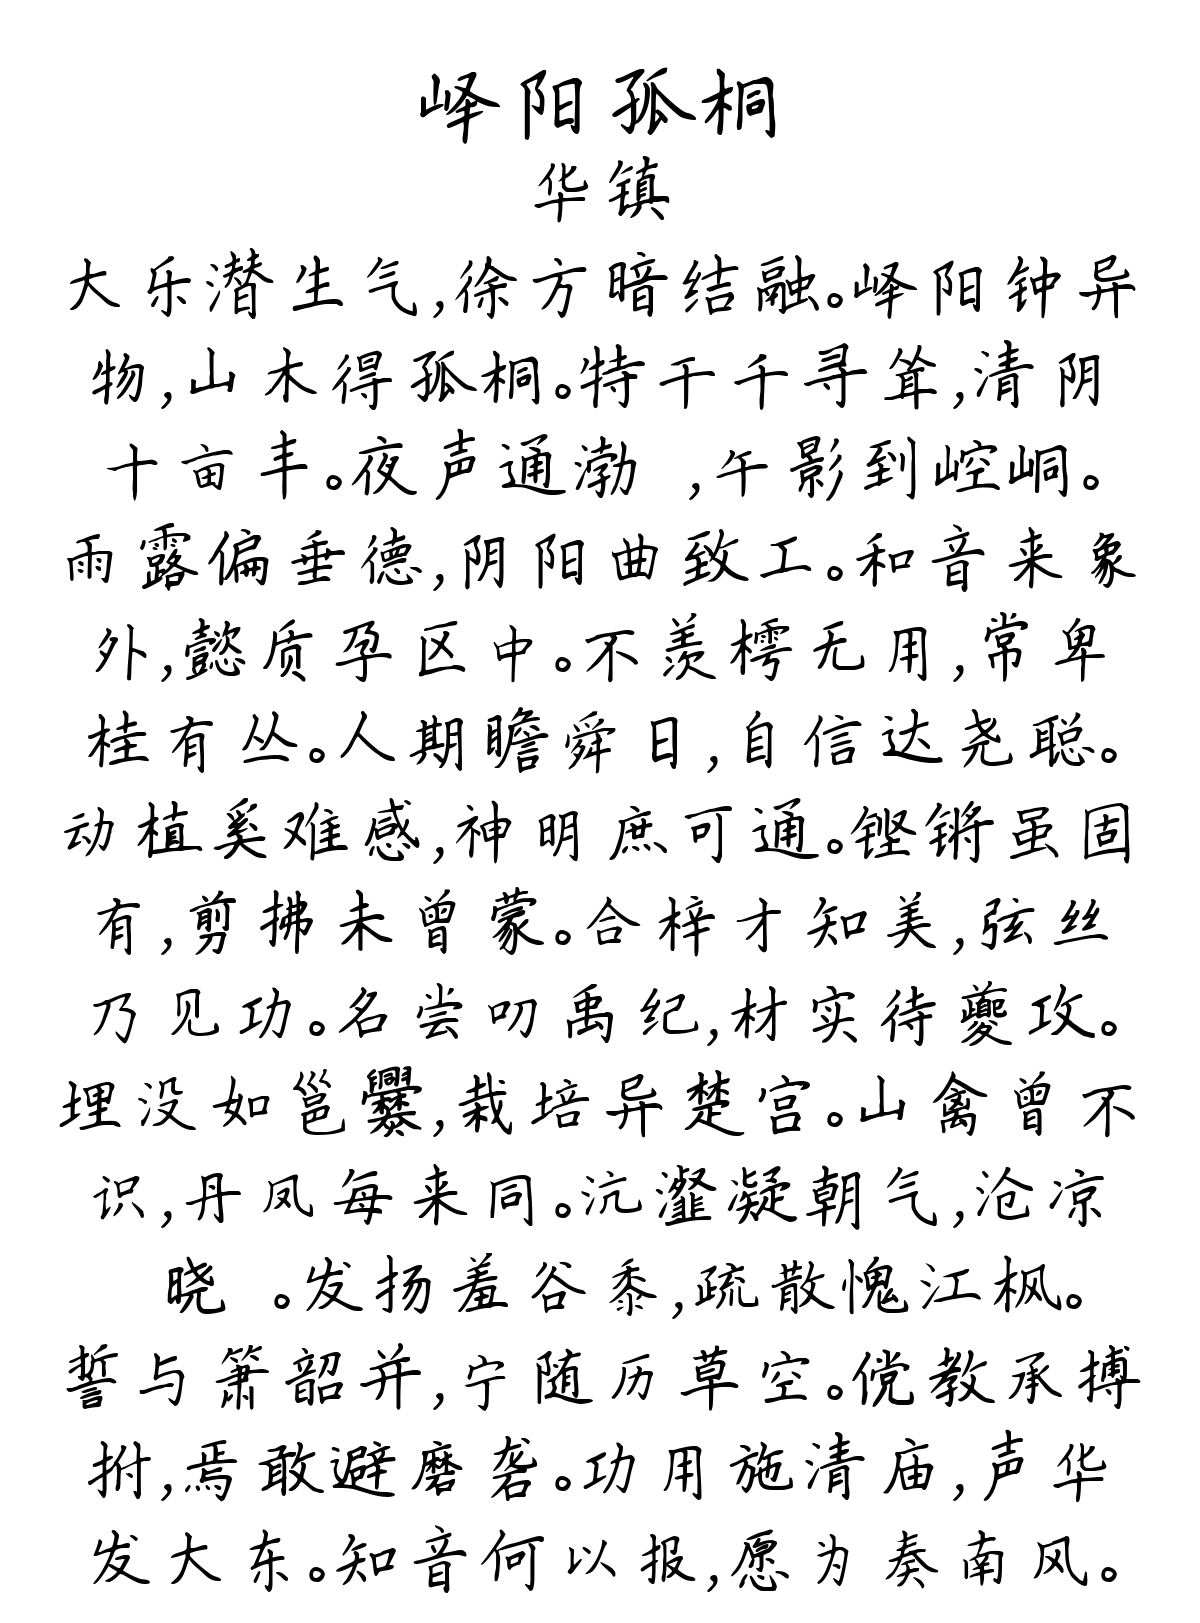 峄阳孤桐
华镇
大乐潜生气,徐方暗结融。峄阳钟异
物,山木得孤桐。特干千寻耸,清阴
十亩丰。夜声通渤 ,午影到崆峒。
雨露偏垂德,阴阳曲致工。和音来象
外,懿质孕区中。不羡樗无用,常卑
桂有丛。人期瞻舜日,自信达尧聪。
动植奚难感,神明庶可通。铿锵虽固
有,剪拂未曾蒙。合梓才知美,弦丝
乃见功。名尝叨禹纪,材实待夔攻。
埋没如邕爨,栽培异楚宫。山禽曾不
识,丹凤每来同。沆瀣凝朝气,沧凉
晓 。发扬羞谷黍,疏散愧江枫。
誓与箫韶并,宁随历草空。傥教承搏
拊,焉敢避磨砻。功用施清庙,声华
发大东。知音何以报,愿为奏南风。